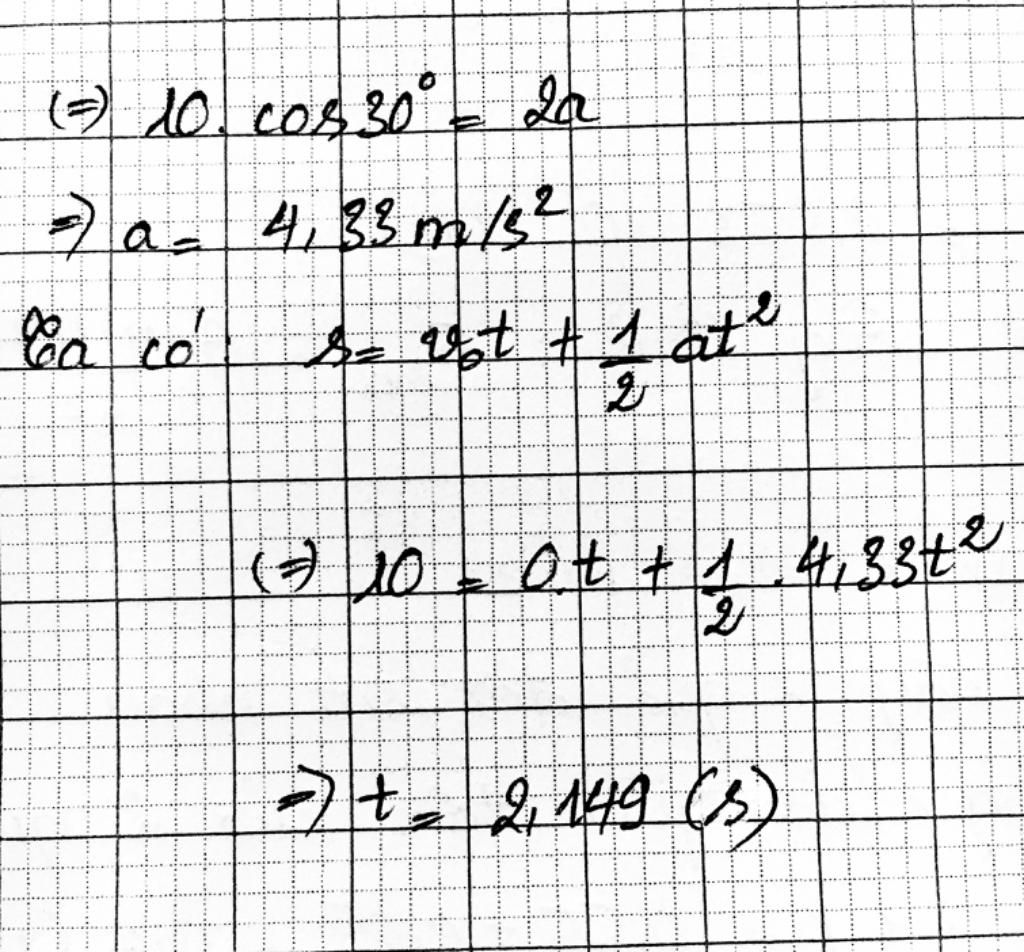 (=) 10. cos30° = 2a
=) a = 4,33 m/s²
Ta có: s = v₀t + 1/2 at²
(=) 10 = 0.t + 1/2 . 4,33t²
=) t = 2,149 (s)